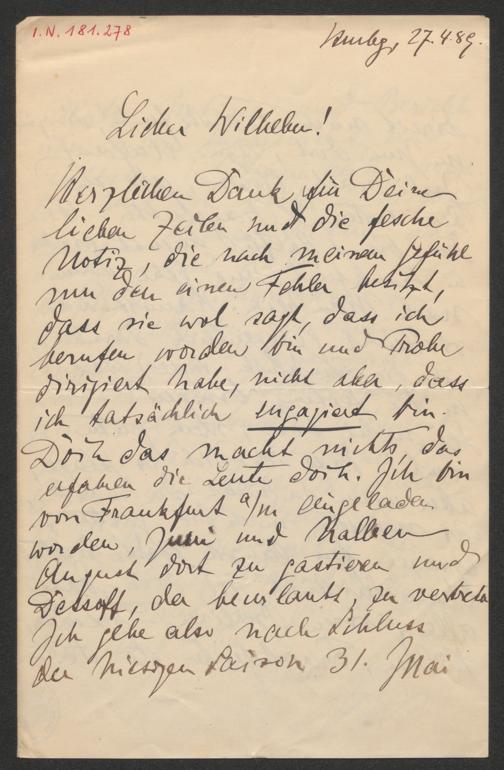 I.N. 181.278
Hmbg, 27.4.89.
Lieber Wilhelm!
Herzlichen Dank für Deine
lieben Zeilen und die fesche
Notiz, die nach meinem Gefühl
nur den einen Fehler besitzt,
dass sie wol sagt, dass ich
berufen worden bin und Probe
dirigiert habe, nicht aber, dass
ich tatsächlich engagiert bin.
Doch das macht nichts, das
erfahren die Leute doch. Ich bin
von Frankfurt a/m eingeladen
worden, Juni und halben
August dort zu gastieren und
Dessoff, der beurlaubt, zu vertreten
Ich gehe also nach Schluss
der hiesigen Saison 31. Mai